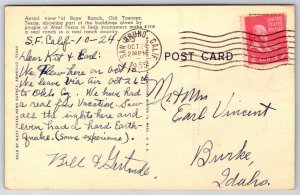 Aerial view of Boys' Ranch, Old Tascosa,
Texas, showing part of the buildings given by
people of West Texas to help youngsters make
a real ranch in a real ranch country.
S.F. Calif - 10-24
Dear Kat & Earl:
We flew here on Oct 10.
We leave West Air Oct 26th
to Okla Cy. We have had
a real fine Vacation. Saw
all the sights here and
even had a hard Earth-
Quake. (Some experience).
Bill & Gertrude
SAN BRUNO, CALIF.
OCT 24
2 30 PM
1955
POST CARD
Mr & Mrs
Earl Vincent
Burke,
Idaho.